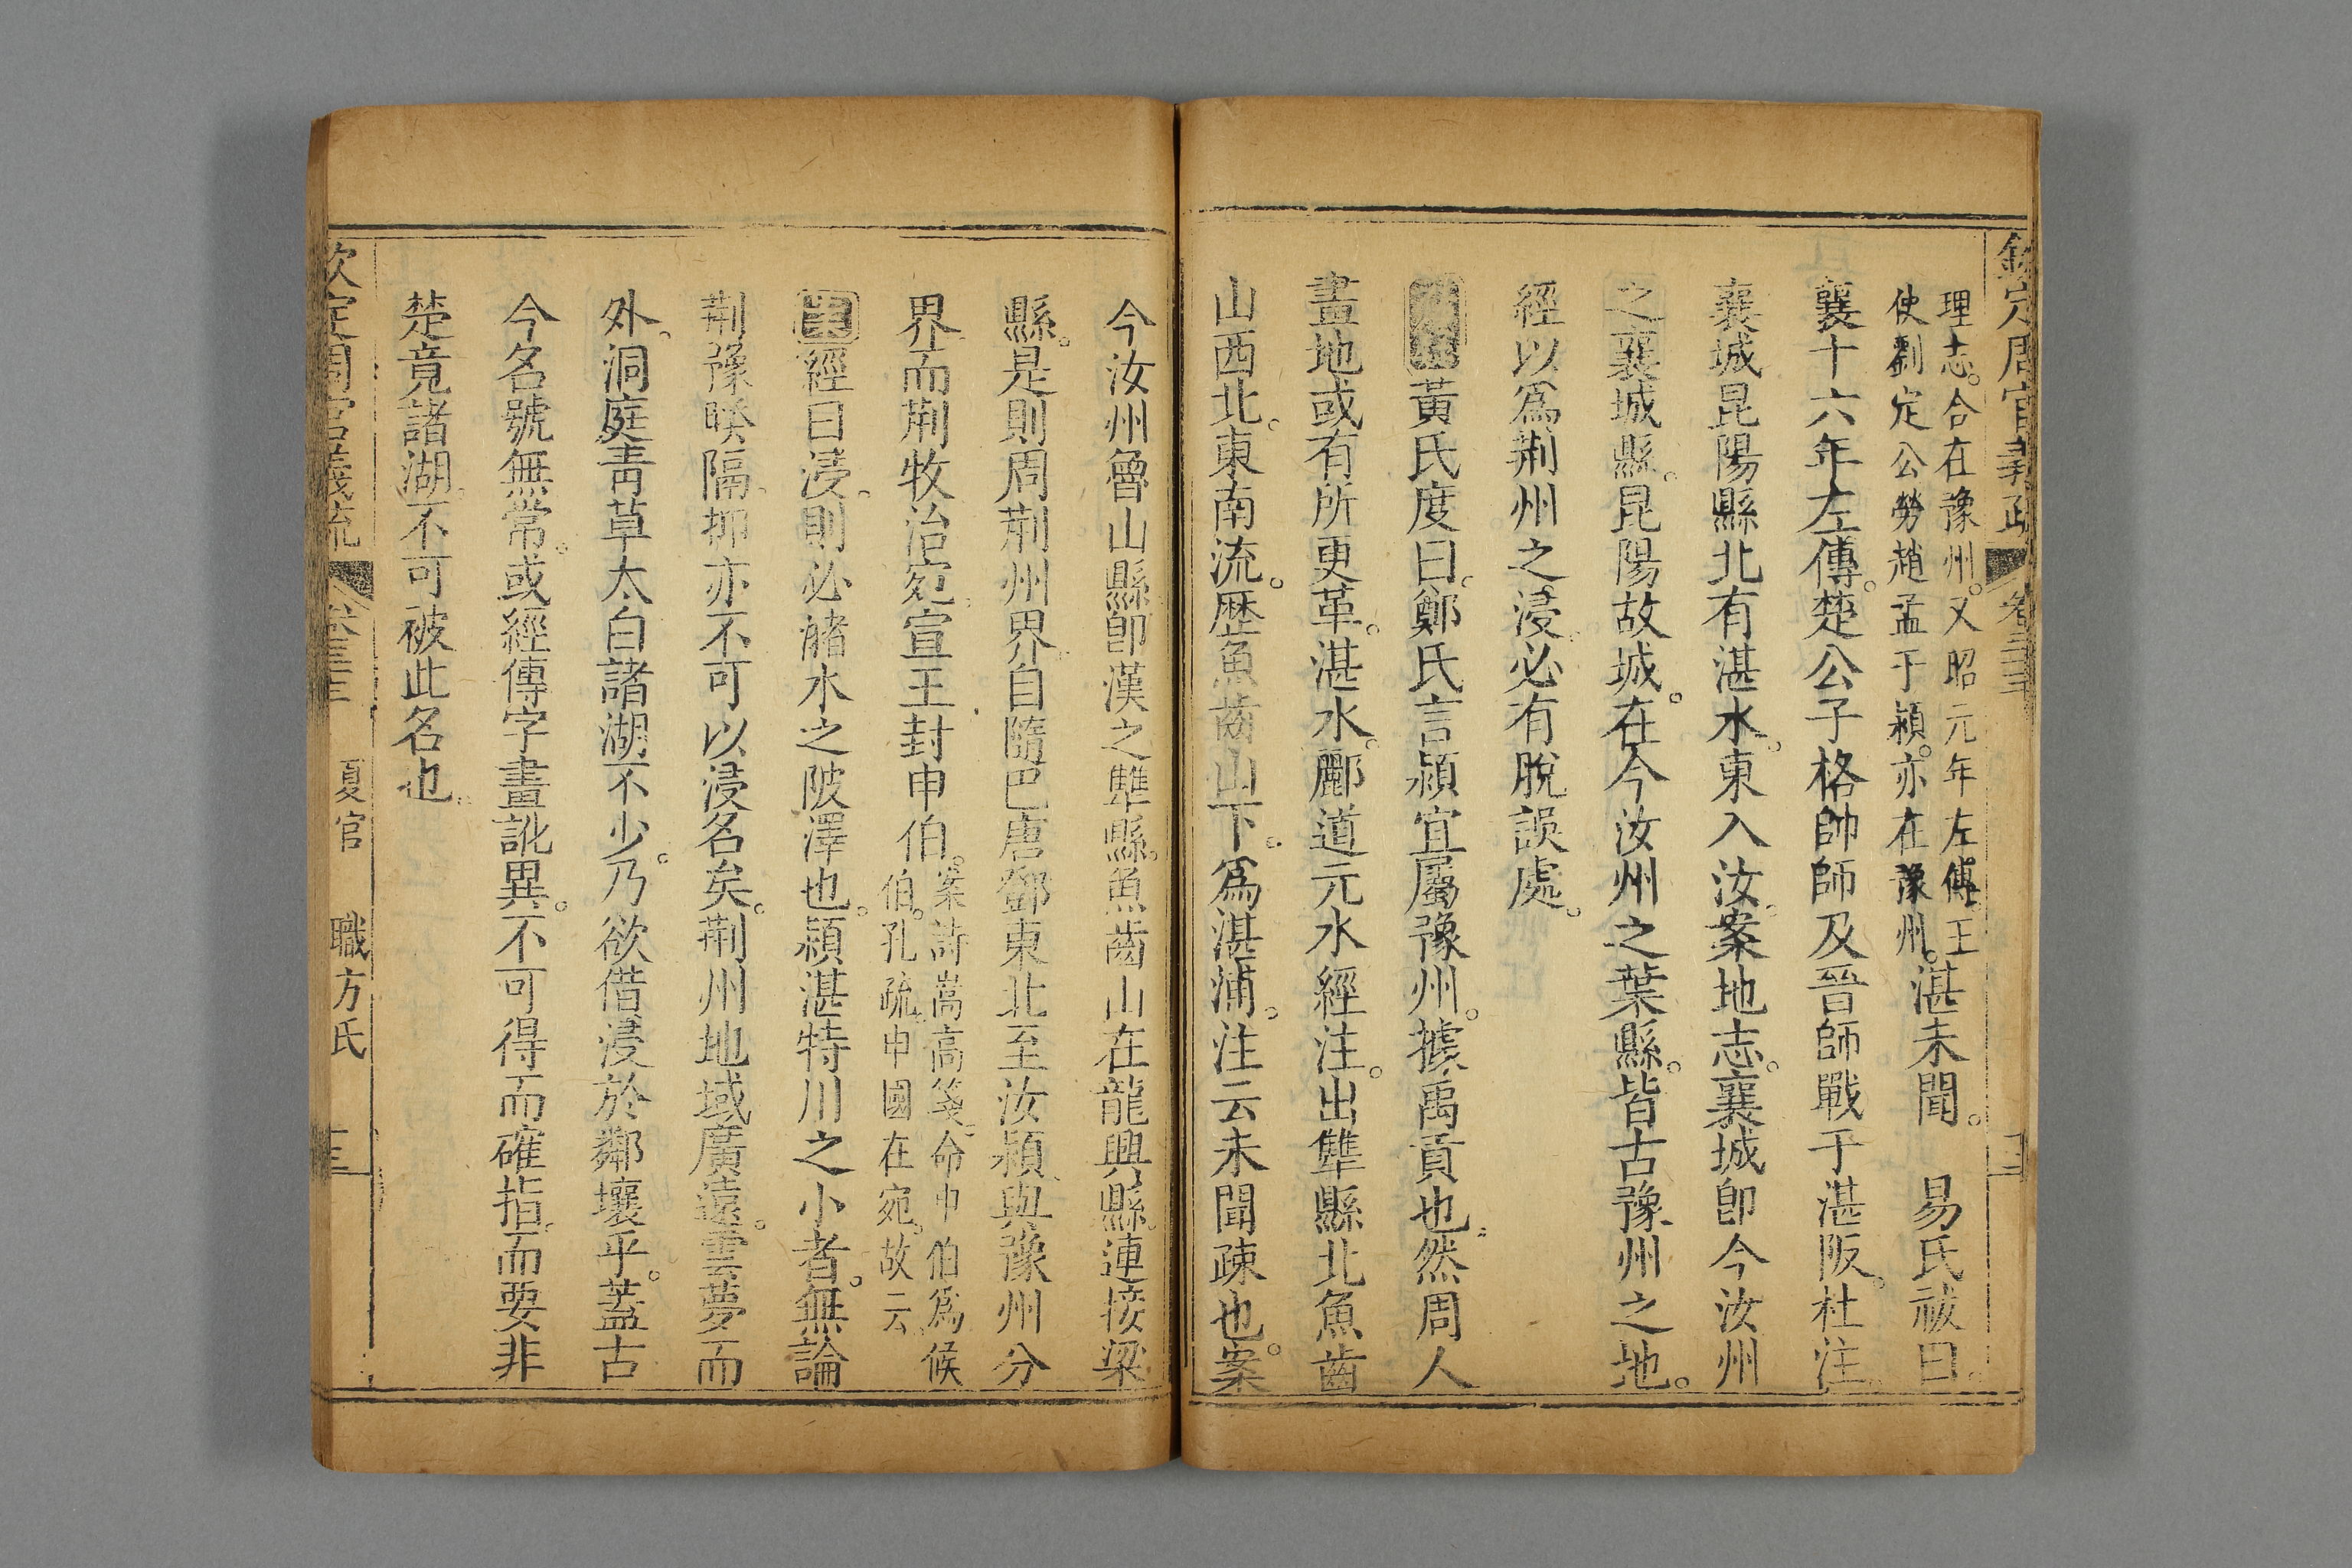 欽定周官義疏 卷三十三
理志。合在豫州。又昭元年左傳。王
使劉定公勞趙孟于潁。亦在豫州。湛未聞。 易氏祓曰。
襄十六年左傳。楚公子格帥師及晉師戰于湛阪。杜注。
襄城昆陽縣北有湛水。東入汝。案地志。襄城卽今汝州
之襄城縣。昆陽故城。在今汝州之葉縣。皆古豫州之地。
經以爲荆州之浸。必有脫誤處。
黃氏度曰。鄭氏言潁宜屬豫州。據禹貢也。然周人
畫地或有所更革。湛水。酈道元水經注。出犨縣北魚齒
山西北。東南流。歷魚齒山下。爲湛浦。注云未聞疎也。案
今汝州魯山縣卽漢之犨縣。魚齒山在龍興縣。連接梁
縣。是則周荆州界。自隨巴唐鄧東北至汝潁與豫州分
界。而荆牧治宛。宣王封申伯。案詩嵩高箋。命申伯爲候
伯。孔疏。申國在宛。故云。
案經曰浸。則必豬水之陂澤也。潁湛特川之小者。無論
荆豫暌隔。抑亦不可以浸名矣。荆州地域廣遠。雲夢而
外。洞庭青草太白諸湖不少。乃欲借浸於鄰壤乎。蓋古
今名號無常。或經傳字畫訛異。不可得而確指。而要非
楚竟諸湖。不可被此名也。
欽定周官義疏 卷三十三 夏官 職方氏